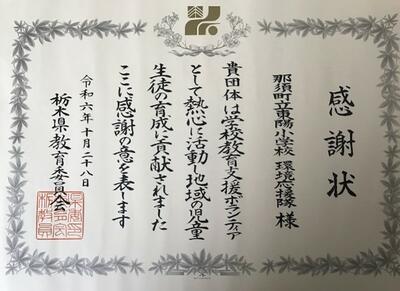 感謝状
那須町立東陽小学校 環境応援隊 様
貴団体は学校教育支援ボランティア
として熱心に活動し地域の児童
生徒の育成に貢献されました
ここに感謝の意を表します
令和六年十月二十八日
栃木県教育委員会